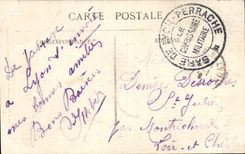 CARTE POSTALE
GARE DE LYON-PERRACHE
COMMISSAIRE
MILITAIRE
De passage
à Lyon
mes bonnes amitiés
Bons Baisers
Denise Desroches
St Julien
par Montrichard
Loir et Cher